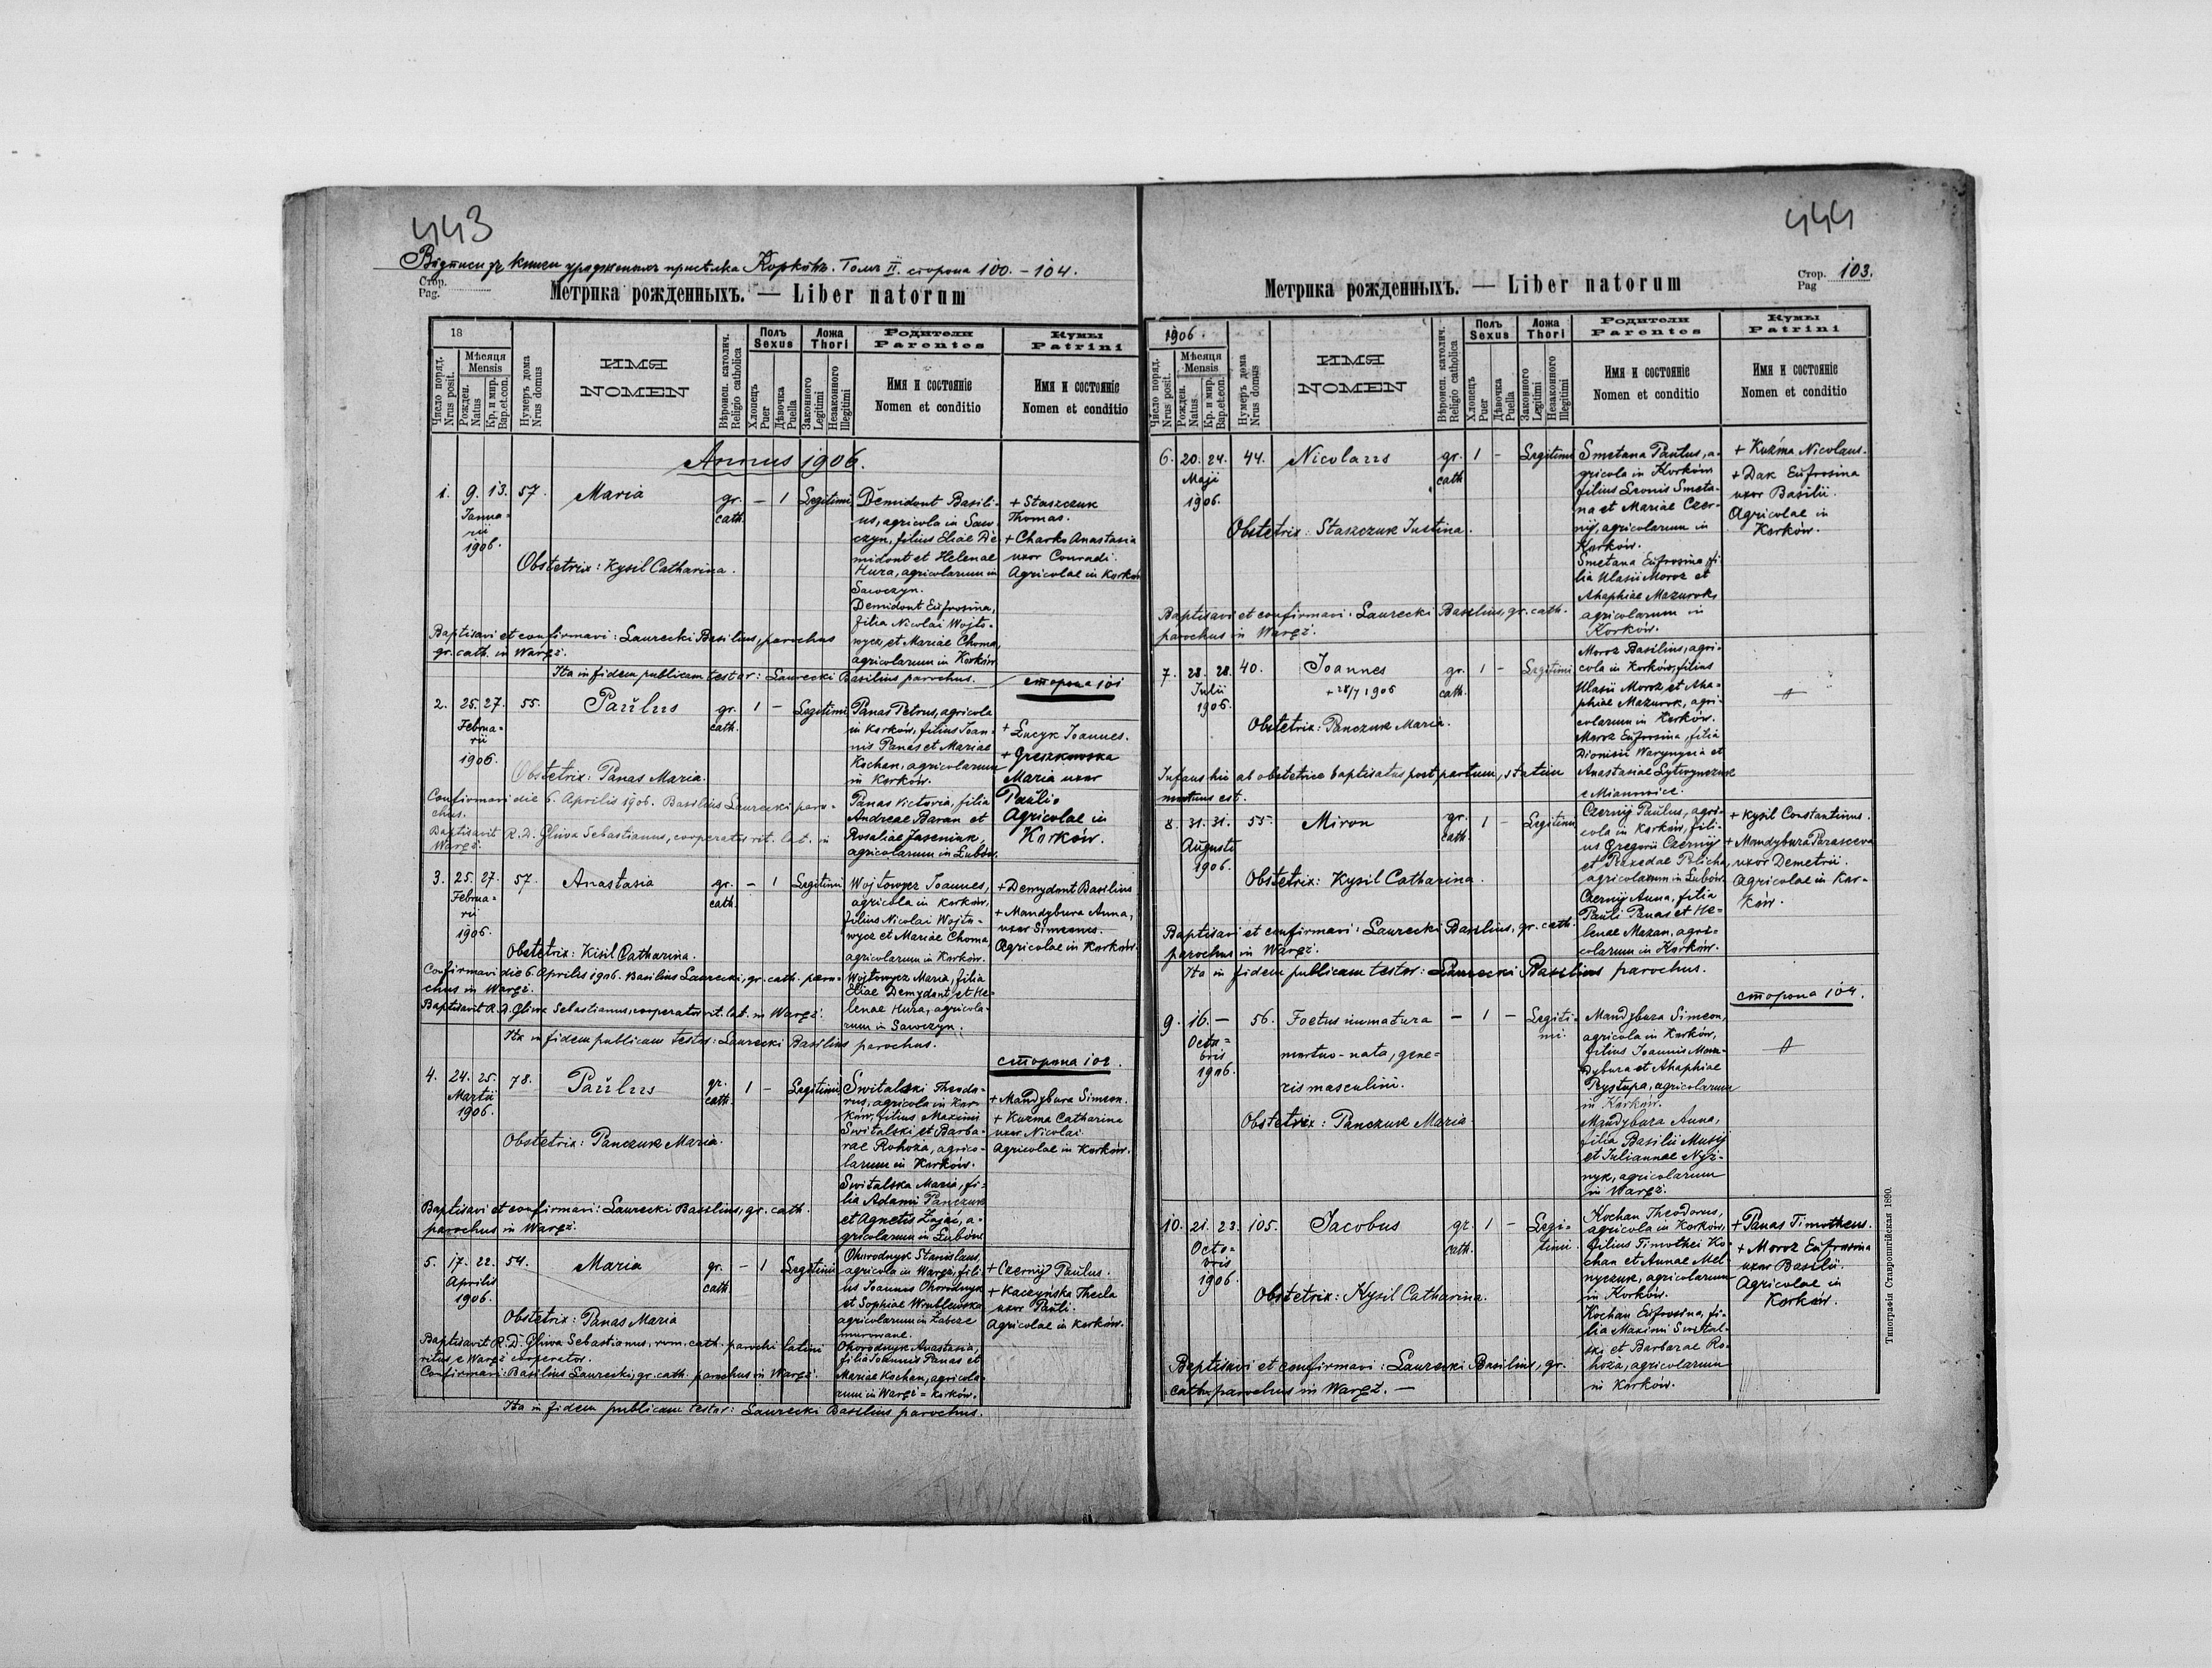 443
Відписи зъ книги урожденныхъ присѣлка Корківъ. Томъ II. сторона 100. - 104.
Стор.
Pag.
Метрика рожденныхъ. — Liber natorum
18
Число поряд. Nrus posit.
Мѣсяця Mensis
Рожден. Natus
Кр. и мир. Bap. et con.
Нумеръ дома Nrus domus
ИМЯ
NOMEN
Вѣроисп. католич. Religio catholica
Полъ Sexus
Хлопецъ Puer
Дѣвочка Puella
Ложа Thori
Законного Legitimi
Незаконного Illegitimi
Родители
Parentes
Имя и состояніе
Nomen et conditio
Кумы
Patrini
Имя и состояніе
Nomen et conditio
Annus 1906.
1. 9. 13. 57. Maria gr. cath. - 1 Legitimi
Januarii
1906.
Obstetrix: Kysil Catharina.
Demidont Basili-
us, agricola in Saw-
czyn, filius Eliae De-
midont et Helenae
Hura, agricolarum in
Sawczyn.
Demidont Eufrosina,
filia Nicolai Wojto-
wycz, et Mariae Choma,
agricolarum in Korków
+ Staszczuk
Thomas.
+ Charko Anastasia
uxor Conradi.
Agricolae in Korków
Baptisavi et confirmavi: Laurecki Basilius, parochus
gr. cath. in Waręż.
Ita in fidem publicam testor: Laurecki Basilius parochus.
сторона 101
2. 25. 27. 55. Paŭlus gr. cath. 1 - Legitimi
Februa-
rii
1906.
Obstetrix: Panas Maria.
Panas Petrus, agricola
in Korków, filius Joan-
nis Panas et Mariae
Kochan, agricolarum
in Korków.
Panas Victoria, filia
Andreae Baran et
Rosaliae Jaseniuk,
agricolarum in Łubów.
+ Łucyk Joannes.
+ Greszkowska
Maria uxor
Paŭli.
Agricolae in
Korków.
Confirmavi die 6. Aprilis 1906. Basilius Laurecki paro-
chus.
Baptisavit R. D. Gliwa Sebastianus, cooperator rit. lat. in
Waręż.
3. 25. 27. 57. Anastasia gr. cath. - 1 Legitimi
Februa-
rii
1906.
Obstetrix: Kisil Catharina.
Wojtowycz Joannes,
agricola in Korków,
filius Nicolai Wojto-
wycz et Mariae Choma,
agricolarum in Korków.
Wojtowycz Maria, filia
Eliae Demydont, et He-
lenae Hura, agricola-
rum in Sawczyn.
+ Demydont Basilius
+ Mandybura Anna,
uxor Simeonis.
Agricolae in Korków.
Confirmavi die 6. Aprilis 1906. Basilius Laurecki, gr. cath. paro-
chus in Waręż.
Baptisavit R. D. Gliwa Sebastianus, cooperator rit. lat. in Waręż.
Ita in fidem publicam testor: Laurecki Basilius parochus.
сторона 102.
4. 24. 25. 78. Paŭlus gr. cath. 1 - Legitimi
Martii
1906.
Obstetrix: Panczuk Maria.
Switalski Theodo-
rus, agricola in Kor-
ków, filius Maximi
Switalski et Barba-
rae Rohoża, agrico-
larum in Korków.
Switalska Maria, fi-
lia Adami Panczuk
et Agnetis Zając, a-
gricolarum in Łubów
+ Mandybura Simeon.
+ Kuzma Catharina
uxor Nicolai
Agricolae in Korków.
Baptisavi et confirmavi: Laurecki Basilius, gr. cath.
parochus in Waręż.
5. 17. 22. 54. Maria gr. cath. - 1 Legitimi
Aprilis
1906.
Obstetrix: Panas Maria
Ohorodnyk Stanislaus,
agricola in Waręż, fili-
us Joannes Ohorodnyk
et Sophiae Wrublewska
agricolarum in Żabcze
murowane.
Ohorodnyk Anastasia,
filia Joannis Panas et
Mariae Kochan, agricola-
rum in Waręż = Korków.
+ Czernij Paŭlus.
+ Kaczyńska Thecla
uxor Paŭli.
Agricolae in Korków.
Baptisavit R. D. Gliwa Sebastianus, rom. cath. parochi latini
ritus, e Waręż cooperator.
Confirmavi: Basilius Laurecki, gr. cath. parochus in Waręż.
Ita in fidem publicam testor: Laurecki Basilius parochus.
444
Стор.
Pag 103.
Метрика рожденныхъ. — Liber natorum
1906.
Число поряд. Nrus posit.
Мѣсяця Mensis
Рожден. Natus
Кр. и мир. Bap. et con.
Нумеръ дома Nrus domus
ИМЯ
NOMEN
Вѣроисп. католич. Religio catholica
Полъ Sexus
Хлопецъ Puer
Дѣвочка Puella
Ложа Thori
Законного Legitimi
Незаконного Illegitimi
Родители
Parentes
Имя и состояніе
Nomen et conditio
Кумы
Patrini
Имя и состояніе
Nomen et conditio
6. 20. 24. 44. Nicolaus gr. cath 1 - Legitimi
Maji
1906.
Obstetrix: Staszczuk Justina.
Smetana Paulus, a-
gricola in Korków
filius Leonis Smeta-
na et Mariae Czer-
nij, agricolarum in
Korków.
Smetana Eufrosina, fi-
lia Ulasii Moroz et
Ahaphiae Mazurok,
agricolarum in
Korków.
+ Kuźma Nicolaus.
+ Dak Eufrosina
uxor Basilii.
Agricolae in
Korków.
Baptisavi et confirmavi: Laurecki Basilius, gr. cath.
parochus in Waręż.
7. 28. 28. 40. Joannes gr. cath. 1 - Legitimi
Julii
1906.
+ 28/7 1906
Obstetrix: Panczuk Maria.
Moroz Basilius, agri-
cola in Korków, filius
Ulasii Moroz, et Aha-
phiae Mazurok, agri-
colarum in Korków.
Moroz Eufrosina, filia
Dionisii Warynycia et
Anastasiae Lytwynczuk
e Mianowice.
Infans hic ab obstetrice baptisatus post partum, statim
mortuus est.
8. 31. 31. 55. Miron gr. cath. 1 - Legitimi
Augusti
1906.
Obstetrix: Kysil Catharina.
Czernij Paŭlus, agri-
cola in Korków, fili-
us Gregorii Czernij
et Praxedae Policha,
agricolarum in Łubów.
Czernij Anna, filia
Pauli Panas et He-
lenae Mazan, agri-
colarum in Korków.
+ Kysil Constantinus.
+ Mandybura Parasceva
uxor Demetrii.
Agricolae in Kor-
ków.
Baptisavi et confirmavi: Laurecki Basilius, gr. cath.
parochus in Waręż.
Ita in fidem publicam testor: Laurecki Basilius parochus.
сторона 104.
9. 16. — 56. Foetus inmatura - 1 - Legiti-
mi.
Octo-
bris
1906.
mortuo-nata, gene-
ris masculini.
Obstetrix: Panczuk Maria
Mandybura Simeon,
agricola in Korków,
filius Joannis Man-
dybura et Ahaphiae
Prystupa, agricolarum
in Korków.
Mandybura Anna,
filia Basilii Musij
et Juliannae Nyż-
nyk, agricolarum
in Waręż.
10. 21. 23. 105. Jacobus gr. cath. 1 - Legi-
timi.
Octo-
bris
1906.
Obstetrix: Kysil Catharina.
Kochan Theodorus,
agricola in Korków,
filius Timothei Ko-
chan et Annae Mel-
nyczuk, agricolarum
in Korków.
Kochan Eufrosina, fi-
lia Maximi Switał-
ski et Barbarae Ro-
hoża, agricolarum
in Korków.
+ Panas Timotheus.
+ Moroz Eufrosina
uxor Basilii.
Agricolae in
Korków.
Baptisavi et confirmavi: Laurecki Basilius, gr.
cath. parochus in Waręż. —
Типографія Ставропигійская 1890.